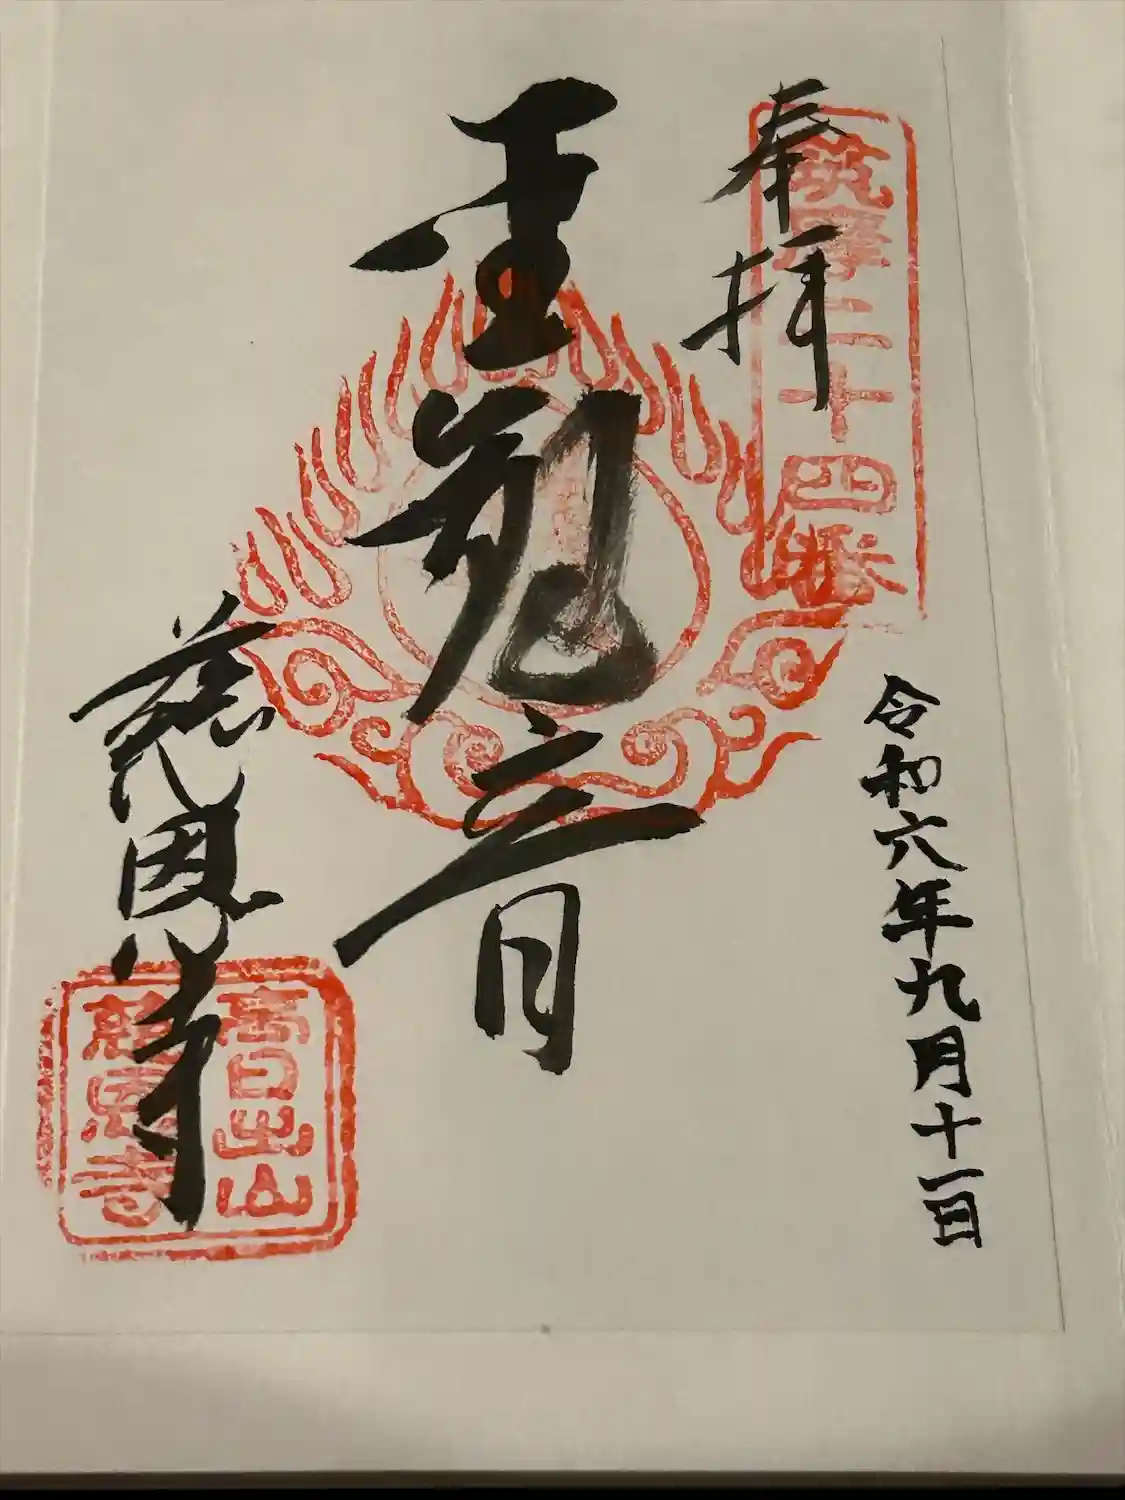 奉拝
筑摩三十四番
令和六年九月十一日
聖観音
慈恩寺
高日出山
慈恩寺